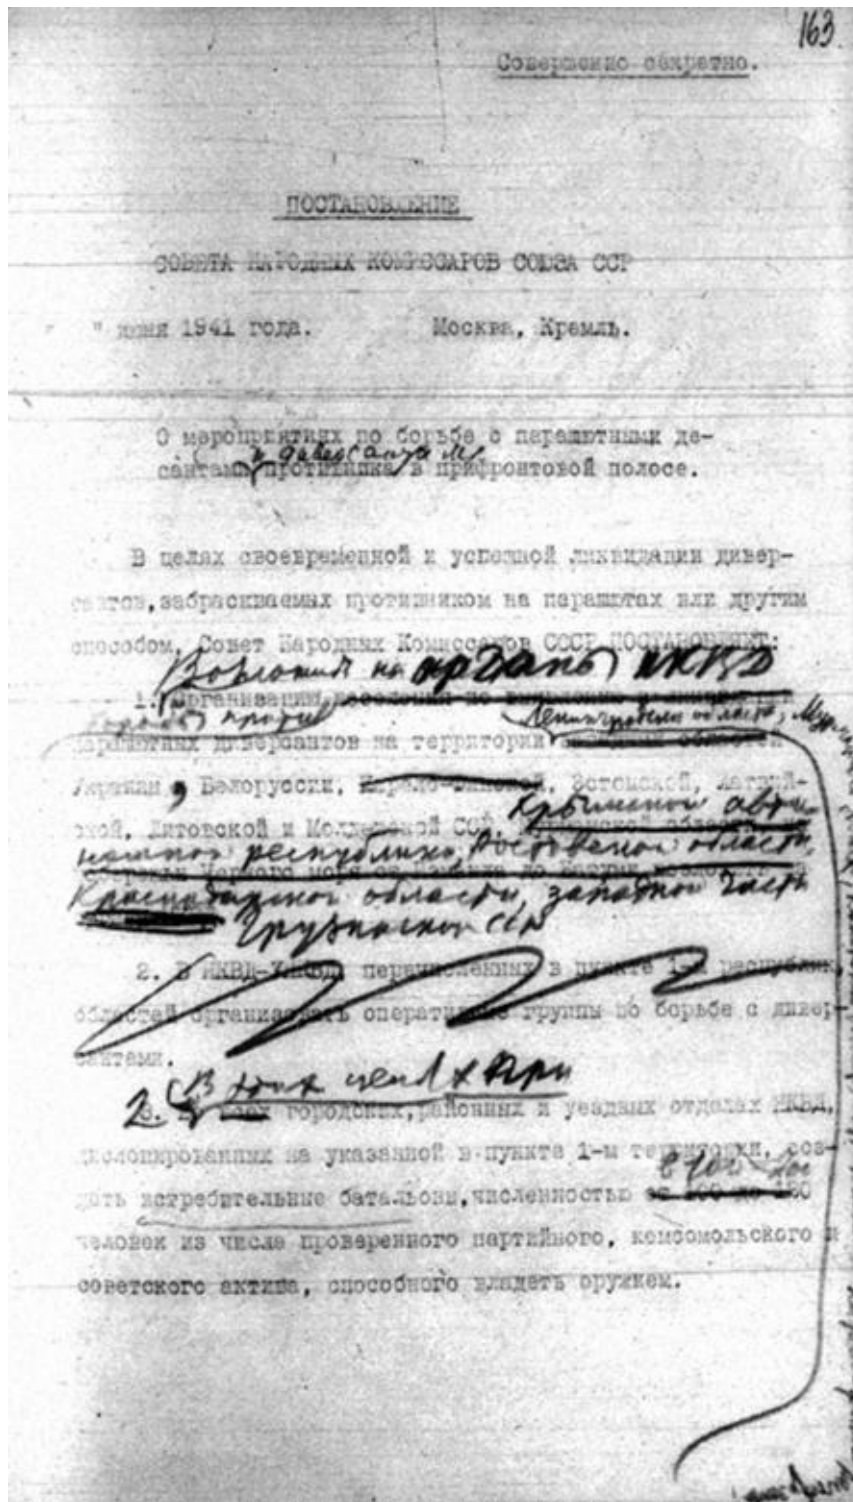 163
Совершенно секретно.
ПОСТАНОВЛЕНИЕ
СОВЕТА НАРОДНЫХ КОМИССАРОВ СОЮЗА ССР
" июня 1941 года. Москва, Кремль.
О мероприятиях по борьбе с парашютными де-
и диверсантами
сантами противника в прифронтовой полосе.
В целях своевременной и успешной ликвидации дивер-
сантов, забрасываемых противником на парашютах или другим
способом, Совет Народных Комиссаров СССР ПОСТАНОВЛЯЕТ:
Возложить на органы НКВД
1. Организацию населения по
борьбы против Ленинградской области,
парашютных диверсантов на территории западных областей
Украины, Белоруссии, Карело-Финской, Эстонской, Латвий-
Крымской авто-
ской, Литовской и Молдавской ССР, области
номной республики, Ростовской области,
Черного моря
Краснодарской области, западной части
Грузинской ССР
2. В НКВД-УНКВД перечисленных в пункте 1-м республик,
областей организовать оперативные группы по борьбе с дивер-
сантами.
В этих целях при
2 3. всех городских, районных и уездных отделах НКВД,
дислоцированных на указанной в пункте 1-м территории, соз-
в 100-200
дать истребительные батальоны, численностью от 100 до
человек из числа проверенного партийного, комсомольского и
советского актива, способного владеть оружием.